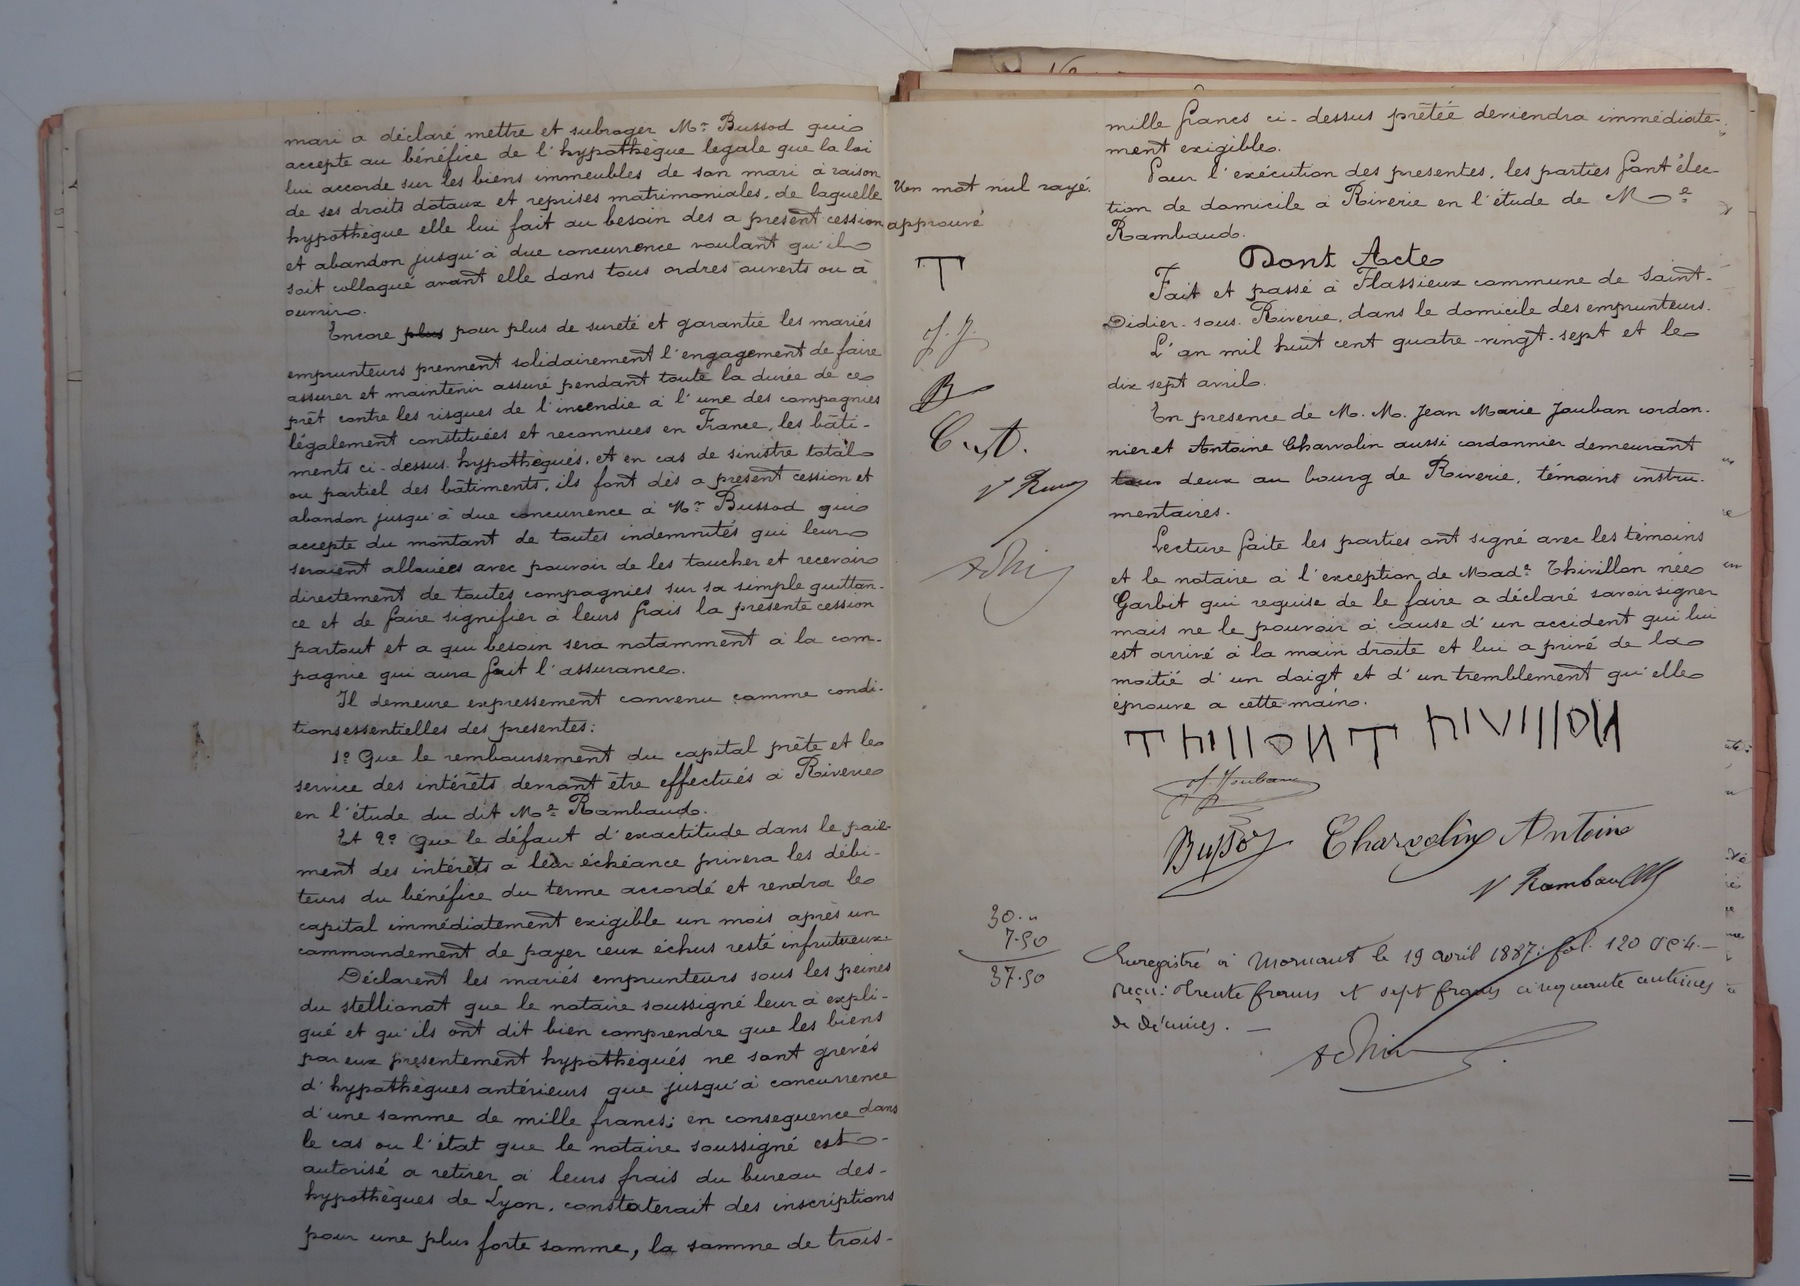 mari a déclaré mettre et subroger Mr Bussod qui
accepte au bénéfice de l'hypothèque legale que la loi
lui accorde sur les biens immeubles de son mari à raison
de ses droits dotaux et reprises matrimoniales, de laquelle
hypothèque elle lui fait au besoin des a présent cession
et abandon jusqu'à due concurrence voulant qu'il
soit colloqué avant elle dans tous ordres ouverts ou à
ouvrir.
Encore plus pour plus de sureté et garantie les mariés
emprunteurs prennent solidairement l'engagement de faire
assurer et maintenir assuré pendant toute la durée de ce
prêt contre les risques de l'incendie à l'une des compagnies
légalement constituées et reconnues en France, les bâti-
ments ci-dessus hypothèqués, et en cas de sinistre total
ou partiel des bâtiments, ils font dès a présent cession et
abandon jusqu'à due concurrence à Mr Bussod qui
accepte du montant de toutes indemnités qui leur
seraient allouées avec pouvoir de les toucher et recevoir
directement de toutes compagnies sur sa simple quittan-
ce et de faire signifier à leurs frais la présente cession
partout et a qui besoin sera notamment à la com-
pagnie qui aura fait l'assurance.
Il demeure expressement convenu comme condi-
tions essentielles des presentes:
1º Que le remboursement du capital prêté et le
service des intérêts devront être effectués à Riverie
en l'étude du dit Me Rambaud.
Et 2º Que le défaut d'exactitude dans le paie-
ment des intérêts à leur échéance privera les débi-
teurs du bénéfice du terme accordé et rendra le
capital immédiatement exigible un mois après un
commandement de payer ceux échus resté infrutueux.
Déclarent les mariés emprunteurs sous les peines
du stellionat que le notaire soussigné leur a expli-
qué et qu'ils ont dit bien comprendre que les biens
par eux presentement hypothéqués ne sont grevés
d'hypothèques antérieurs que jusqu'à concurrence
d'une somme de mille francs; en consequence dans
le cas ou l'état que le notaire soussigné est
autorisé a retirer à leurs frais du bureau des
hypothèques de Lyon, constaterait des inscriptions
pour une plus forte somme, la somme de trois-
Un mot nul rayé.
approuvé
T
J. J.
B
C. A.
V Ram
30. "
7.50
37.50
mille francs ci-dessus prêtée deviendra immédiate-
ment exigible.
Pour l'exécution des presentes, les parties font élec-
tion de domicile à Riverie en l'étude de Me
Rambaud.
Dont Acte
Fait et passé à Flassieux commune de Saint-
Didier-sous-Riverie, dans le domicile des emprunteurs.
L'an mil huit cent quatre-vingt-sept et le
dix sept avril.
En presence de M. M. Jean Marie Jouban cordon-
nier et Antoine Charvolin aussi cordonnier demeurant
tous deux au bourg de Riverie, témoins instru-
mentaires.
Lecture faite les parties ont signé avec les témoins
et le notaire à l'exception de Made Thivillon née
Garbit qui requise de le faire a déclaré savoir signer
mais ne le pouvoir à cause d'un accident qui lui
est arrivé à la main droite et lui a privé de la
moitié d'un doigt et d'un tremblement qu'elle
éprouve a cette main.
ThillON T hiVillON
J. Jouban
Bussod Charvolin Antoine
V Rambaud
Enregistré à Mornant le 19 avril 1887: fol. 120 Vº C. 4. —
reçu: trente francs et sept francs cinquante centimes
de décimes. —